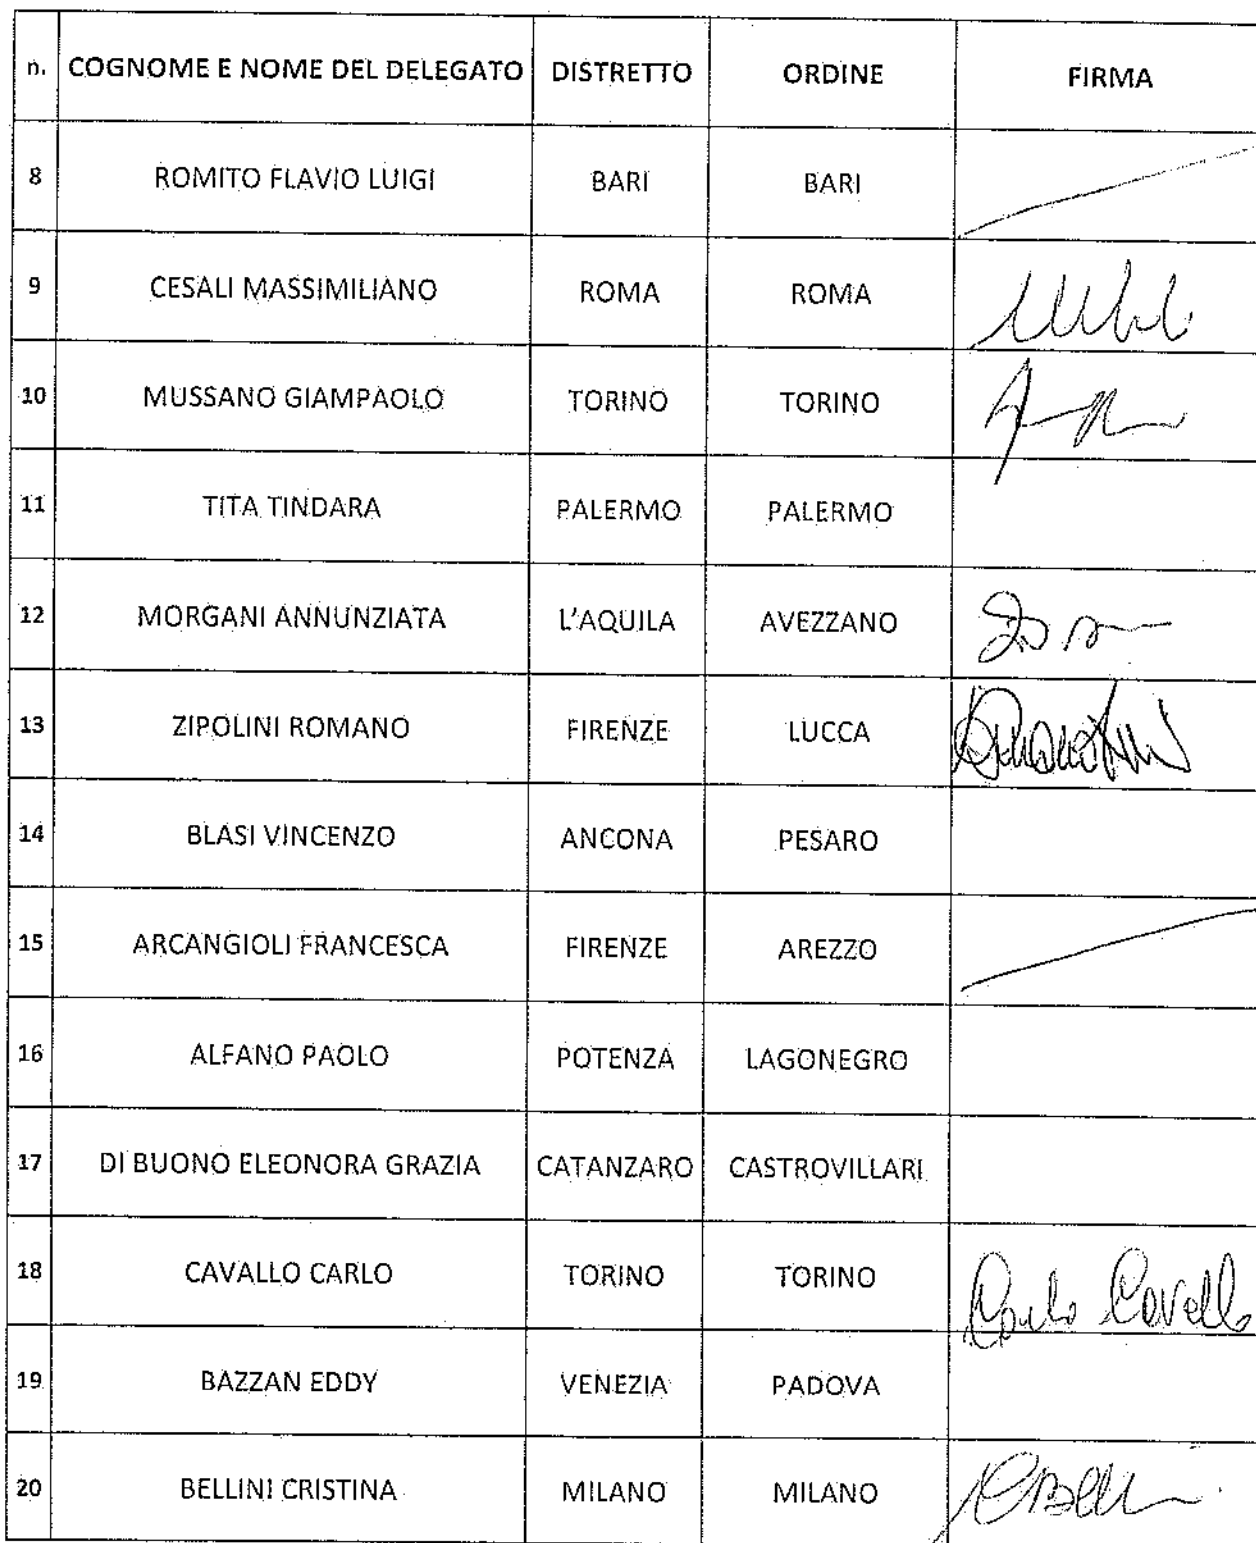 n. COGNOME E NOME DEL DELEGATO DISTRETTO ORDINE FIRMA
8 ROMITO FLAVIO LUIGI BARI BARI
9 CESALI MASSIMILIANO ROMA ROMA
10 MUSSANO GIAMPAOLO TORINO TORINO
11 TITA TINDARA PALERMO PALERMO
12 MORGANI ANNUNZIATA L'AQUILA AVEZZANO
13 ZIPOLINI ROMANO FIRENZE LUCCA
14 BLASI VINCENZO ANCONA PESARO
15 ARCANGIOLI FRANCESCA FIRENZE AREZZO
16 ALFANO PAOLO POTENZA LAGONEGRO
17 DI BUONO ELEONORA GRAZIA CATANZARO CASTROVILLARI
18 CAVALLO CARLO TORINO TORINO Carlo Cavallo
19 BAZZAN EDDY VENEZIA PADOVA
20 BELLINI CRISTINA MILANO MILANO